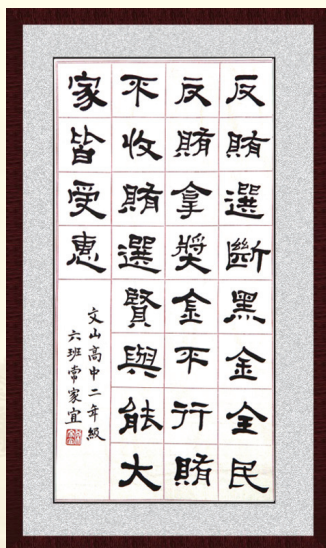 反賄選斷黑金全民
反賄拿獎金不行賄
不收賄選賢與能大
家皆受惠
文山高中二年級
六班常家宜